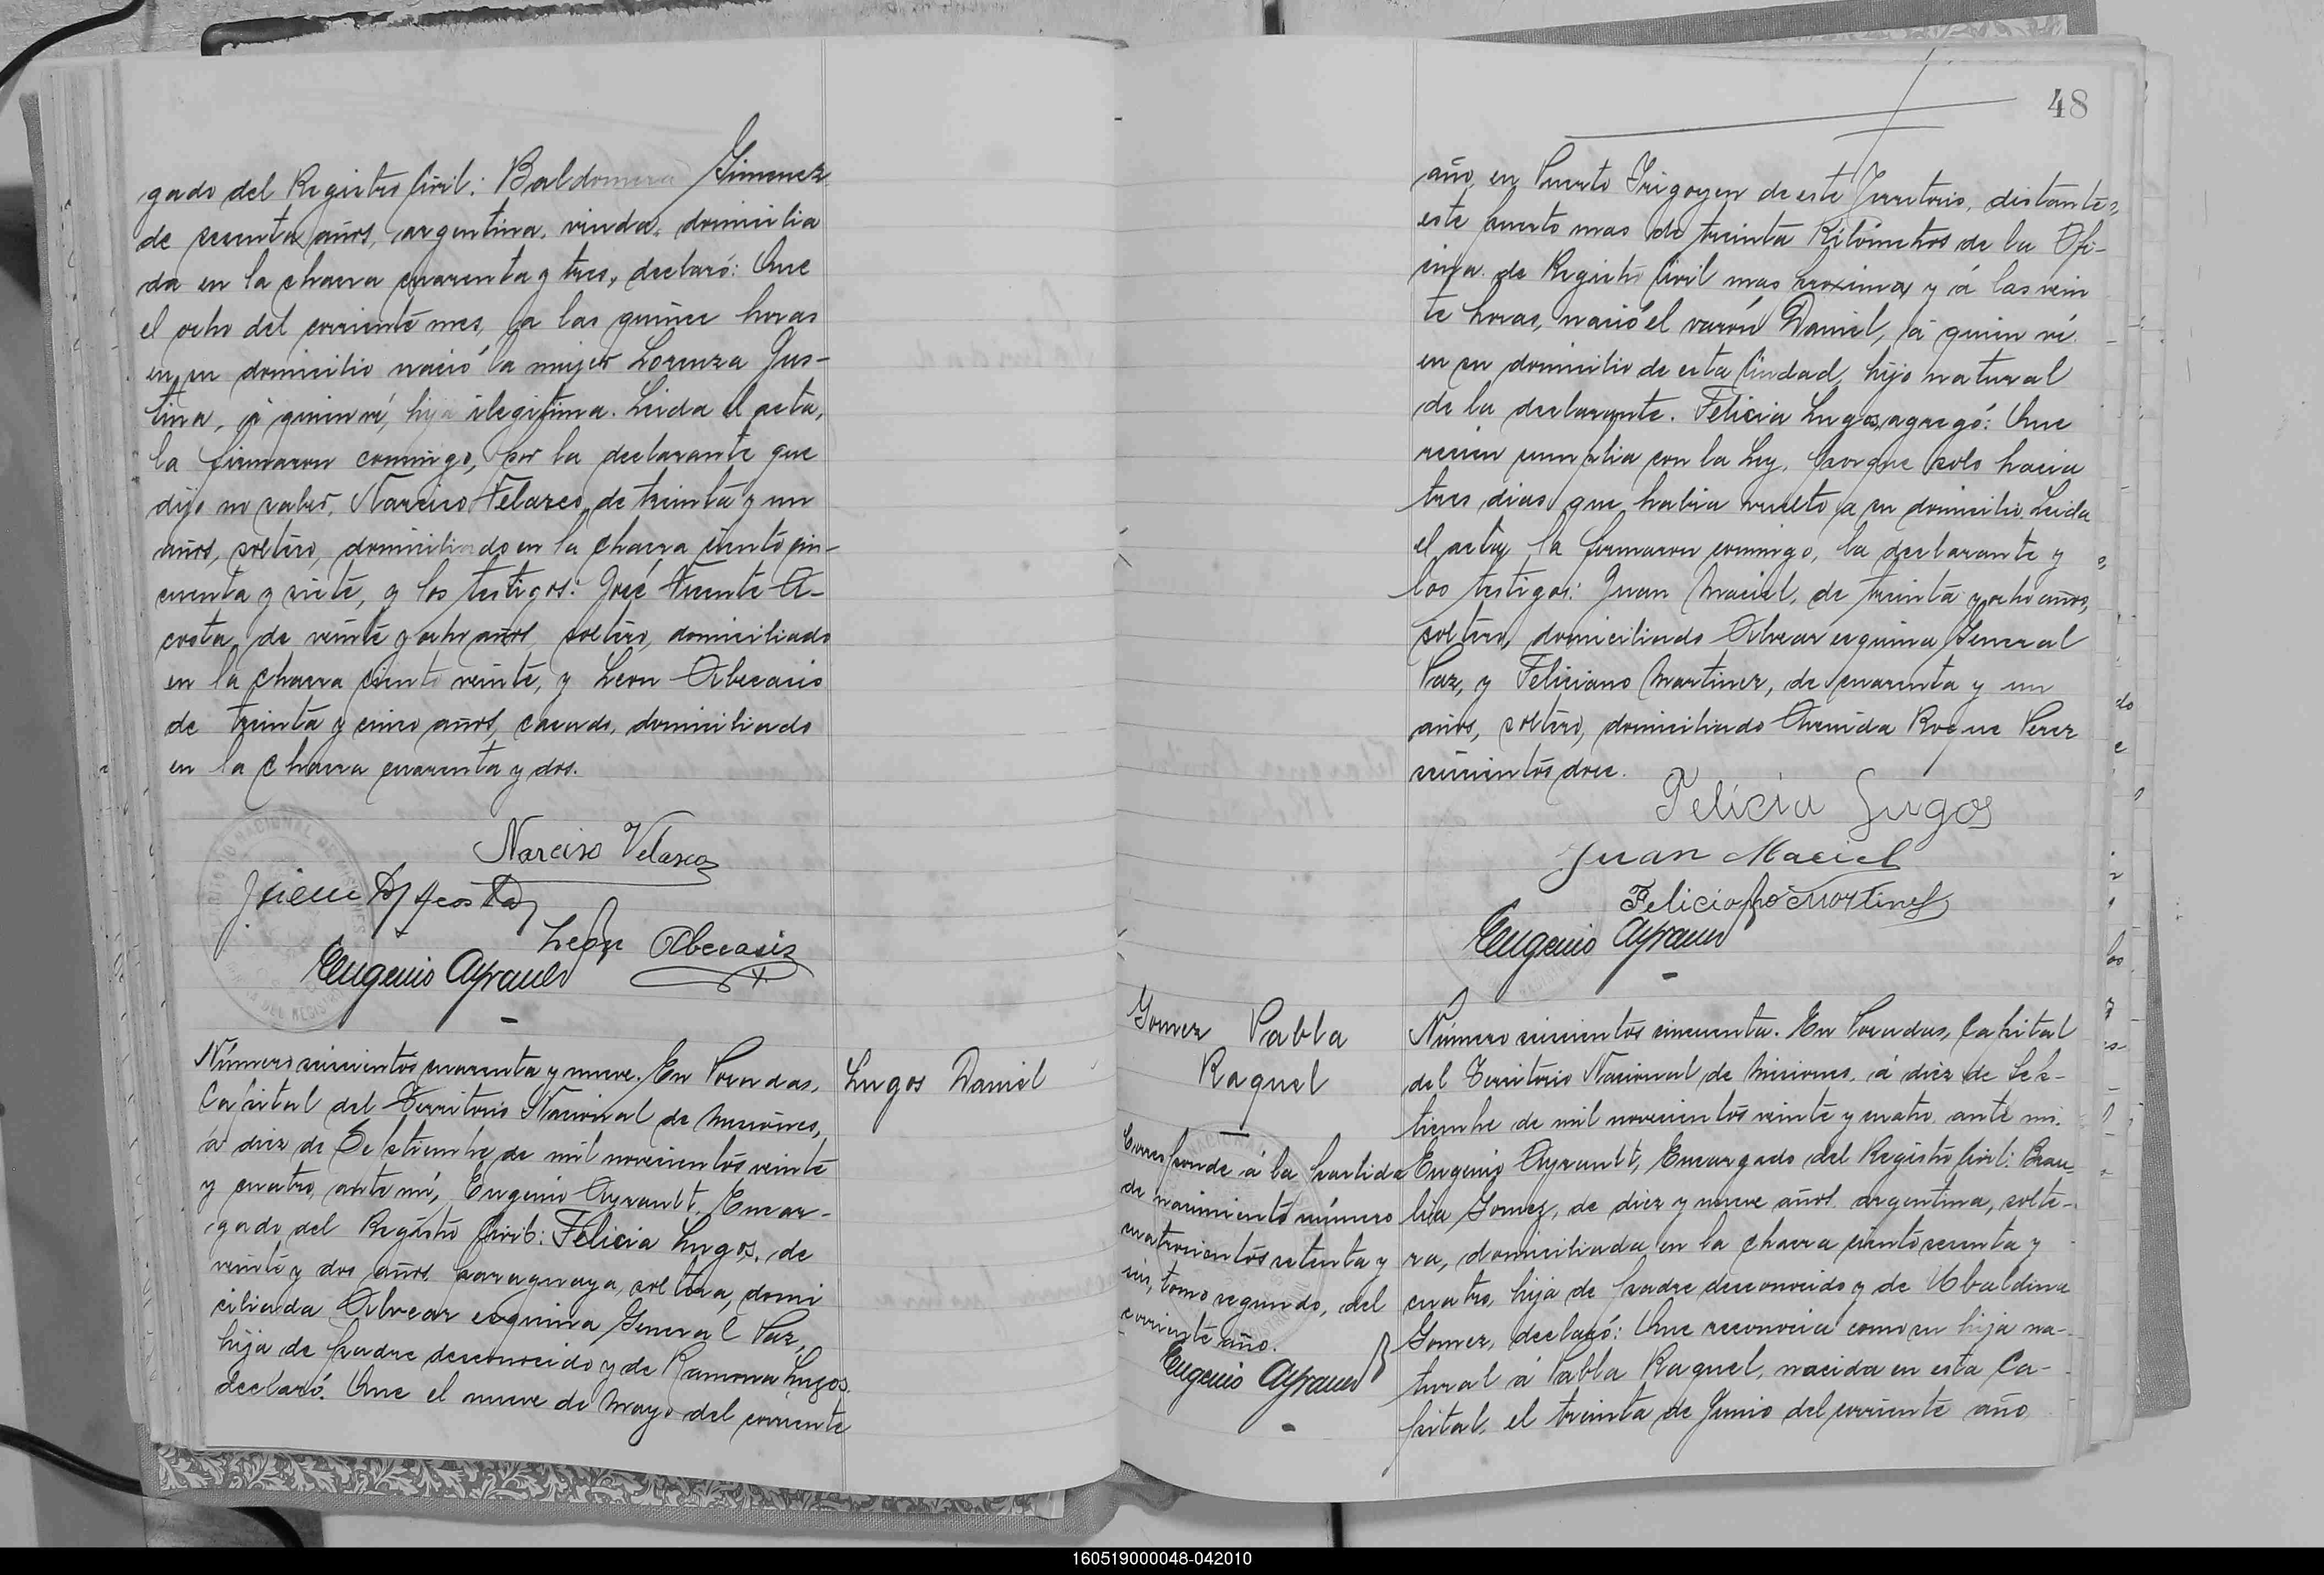 gado del Registro Civil: Baldomera Gimenez
de sesenta años, argentina, viuda, domicilia
da en la chacra cuarenta y tres, declaró: Que
el ocho del corriente mes, a las quince horas
en su domicilio nació la mujer Lorenza Jus-
tina, á quien ví, hija ilegitima. Leida el acta,
la firmaron conmigo, por la declarante que
dijo no saber, Narciso Velazco, de treinta y un
años, soltero, domiciliado en la chacra ciento cin-
cuenta y siete, y los testigos: José Vicente A-
costa, de veinte y ocho años, soltero, domiciliado
en la chacra ciento veinte, y Leon Abecasis
de treinta y cinco años, casado, domiciliado
en la chacra cuarenta y dos.
Narciso Velasco
Acosta
León Abecasis
Eugenio Ayrault
Número seiscientos cuarenta y nueve. En Posadas,
Capital del Territorio Nacional de Misiones,
á diez de Setiembre de mil novecientos veinte
y cuatro, ante mí, Eugenio Ayrault, Encar-
gado del Registro Civil: Felicia Lugos, de
veinte y dos años, paraguaya, soltera, domi
ciliada Alvear esquina General Paz,
hija de padre desconocido y de Ramona Lugos
declaró: Que el nueve de Mayo del corriente
Lugos Daniel
48
año, en Puerto Irigoyen de este Territorio, distante
este puerto mas de treinta Kilómetros de la Ofi-
cina de Registro Civil mas proxima y á las vein
te horas, nació el varón Daniel, á quien ví
en su domicilio de esta Ciudad, hijo natural
de la declarante. Felicia Lugos, agregó: Que
recien cumplia con la Ley, porque solo hacia
tres dias que habia vuelto a su domicilio. Leida
el acta, la firmaron conmigo, la declarante y
los testigos: Juan Maciel, de treinta y ocho años,
soltero, domiciliado Alvear esquina General
Paz, y Feliciano Martinez, de cuarenta y un
años, soltero, domiciliado Avenida Roque Perez
seiscientos doce.
Felicia Lugos
Juan Maciel
Feliciano Martinez
Eugenio Ayrault
Gomez Pabla
Raquel
Corresponde á la partida
de nacimiento número
cuatrocientos setenta y
seis, tomo segundo, del
corriente año.
Eugenio Ayrault
Número seiscientos cincuenta. En Posadas, Capital
del Territorio Nacional de Misiones, á diez de Se-
tiembre de mil novecientos veinte y cuatro, ante mi,
Eugenio Ayrault, Encargado del Registro Civil: Brau-
lia Gomez, de diez y nueve años, argentina, solte-
ra, domiciliada en la chacra ciento sesenta y
cuatro, hija de padre desconocido y de Ubaldina
Gomez, declaró: Que reconocia como su hija na-
tural á Pabla Raquel, nacida en esta Ca-
pital, el treinta de Junio del corriente año
160519000048-042010